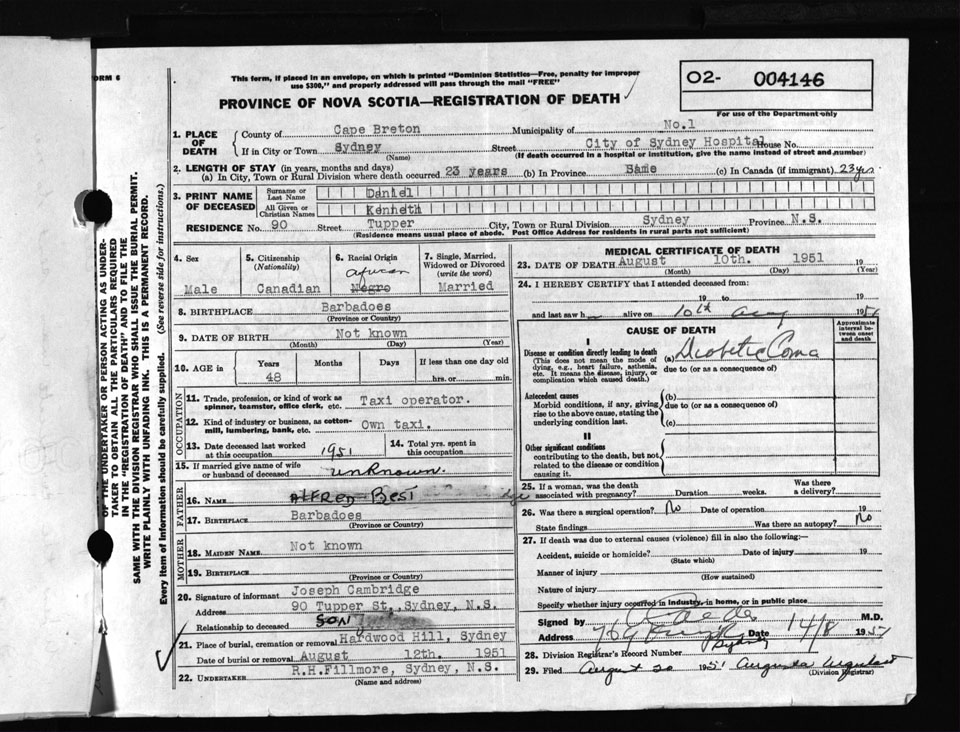 ORM 6
This form, if placed in an envelope, on which is printed "Dominion Statistics—Free, penalty for improper
use $300," and properly addressed will pass through the mail "FREE"
PROVINCE OF NOVA SCOTIA—REGISTRATION OF DEATH
02- 004146
For use of the Department only
OF THE UNDERTAKER OR PERSON ACTING AS UNDER-
TAKER TO OBTAIN ALL THE PARTICULARS REQUIRED
IN THE "REGISTRATION OF DEATH" AND TO FILE THE
SAME WITH THE DIVISION REGISTRAR WHO SHALL ISSUE THE BURIAL PERMIT.
WRITE PLAINLY WITH UNFADING INK. THIS IS A PERMANENT RECORD.
Every item of information should be carefully supplied. (See reverse side for instructions.)
1. PLACE OF DEATH
County of Cape Breton Municipality of No.1
If in City or Town Sydney Street City of Sydney Hospital House No.
(Name) (If death occurred in a hospital or institution, give the name instead of street and number)
2. LENGTH OF STAY (in years, months and days)
(a) In City, Town or Rural Division where death occurred 23 years (b) In Province Same (c) In Canada (if immigrant) 23 yrs
3. PRINT NAME OF DECEASED
Surname or Last Name Daniel
All Given or Christian Names Kenneth
RESIDENCE No. 90 Street Tupper City, Town or Rural Division Sydney Province N.S.
(Residence means usual place of abode. Post Office Address for residents in rural parts not sufficient)
4. Sex Male
5. Citizenship (Nationality) Canadian
6. Racial Origin African Negro
7. Single, Married, Widowed or Divorced (write the word) Married
8. BIRTHPLACE Barbadoes
(Province or Country)
9. DATE OF BIRTH Not known
(Month) (Day) (Year)
10. AGE Years 48 Months Days If less than one day old
hrs. or min.
OCCUPATION
11. Trade, profession, or kind of work as spinner, teamster, office clerk, etc. Taxi operator.
12. Kind of industry or business, as cotton-mill, lumbering, bank, etc. Own taxi.
13. Date deceased last worked at this occupation 1951
14. Total yrs. spent in this occupation
15. If married give name of wife or husband of deceased unknown.
FATHER
16. NAME ALFRED BEST
17. BIRTHPLACE Barbadoes
(Province or Country)
MOTHER
18. MAIDEN NAME Not known
19. BIRTHPLACE
(Province or Country)
20. Signature of informant Joseph Cambridge
Address 90 Tupper St.,Sydney, N.S.
Relationship to deceased SON
21. Place of burial, cremation or removal Hardwood Hill, Sydney
Date of burial or removal August 12th. 1951
22. UNDERTAKER R.H.Fillmore, Sydney, N.S.
(Name and address)
MEDICAL CERTIFICATE OF DEATH
23. DATE OF DEATH August 10th. 1951 19
(Month) (Day) (Year)
24. I HEREBY CERTIFY that I attended deceased from:
19 to 19
and last saw h alive on 10th Aug 1951
CAUSE OF DEATH
Approximate interval between onset and death
I
Disease or condition directly leading to death
(This does not mean the mode of dying, e.g., heart failure, asthenia, etc. It means the disease, injury, or complication which caused death.)
(a) Diabetic Coma
due to (or as a consequence of)
Antecedent causes
Morbid conditions, if any, giving rise to the above cause, stating the underlying condition last.
(b)
due to (or as a consequence of)
(c)
II
Other significant conditions
contributing to the death, but not related to the disease or condition causing it.
25. If a woman, was the death associated with pregnancy? Duration weeks. Was there a delivery?
26. Was there a surgical operation? No Date of operation 19
State findings Was there an autopsy? No
27. If death was due to external causes (violence) fill in also the following:—
Accident, suicide or homicide? Date of injury 19
(State which)
Manner of injury
(How sustained)
Nature of injury
Specify whether injury occurred in industry, in home, or in public place
Signed by M.D.
Address Sydney Date 14/8 1951
28. Division Registrar's Record Number
29. Filed August 20 1951 Augusta Urquhart
(Division Registrar)